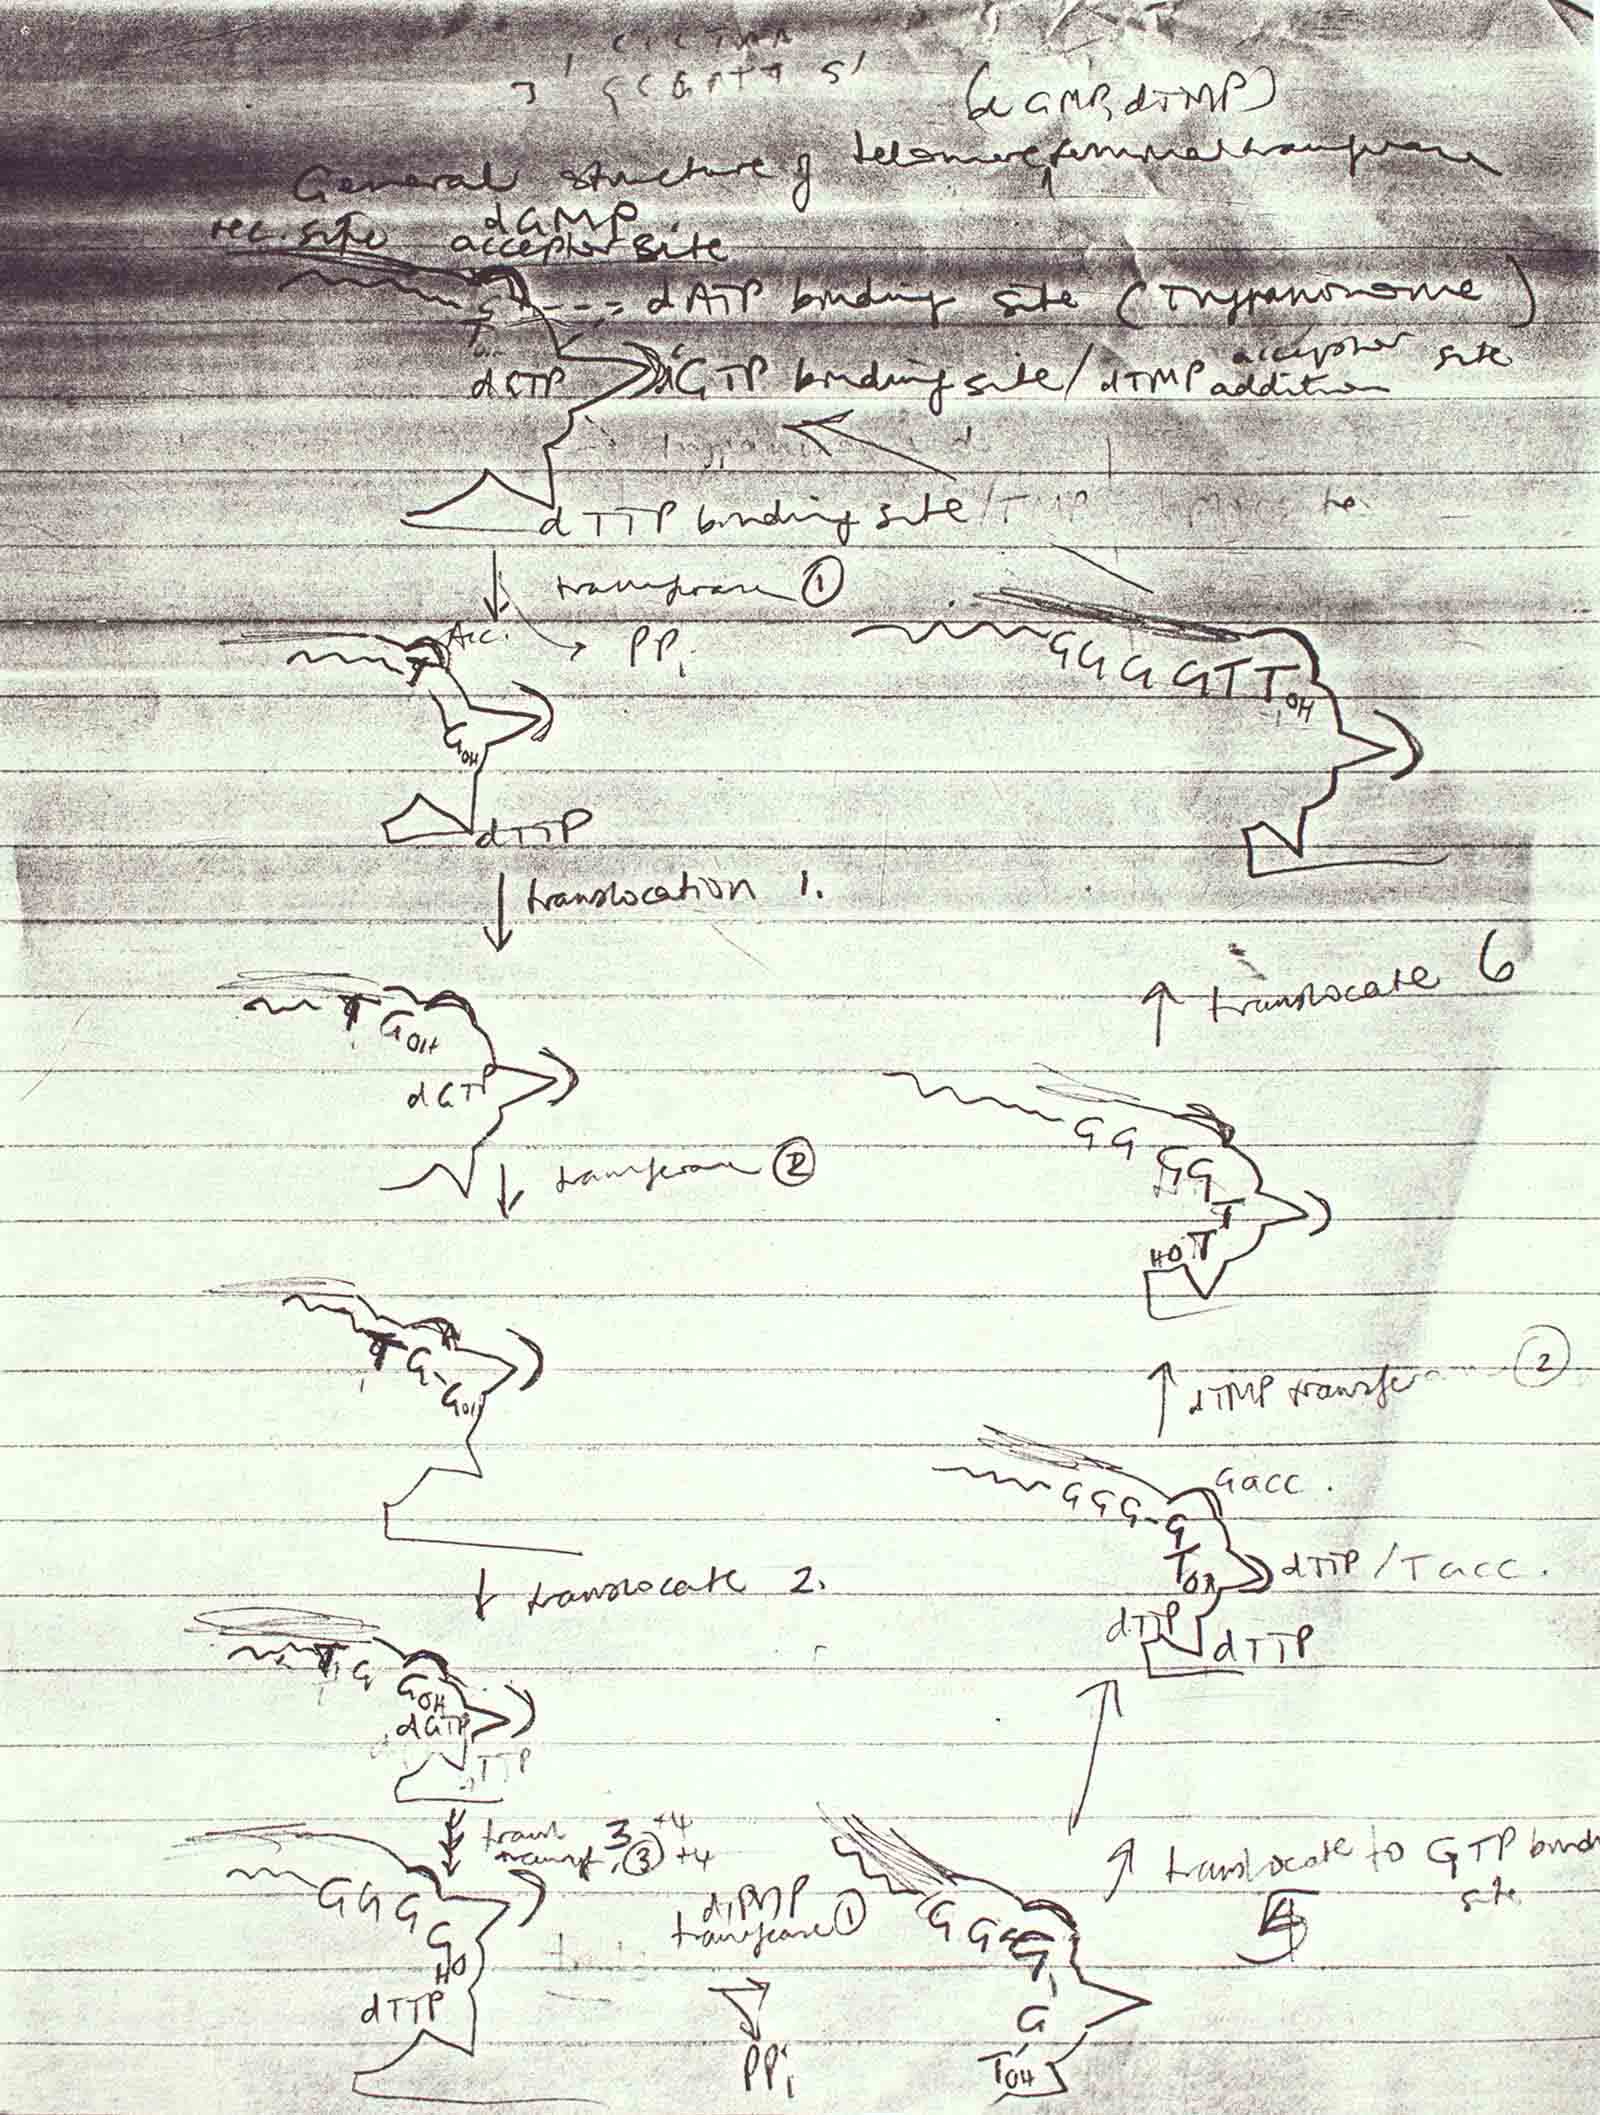 (dGMP, dTMP)
General structure of telomere terminal transferase
rec. site dGMP
acceptor site
dATP binding site (Trypanosome)
acceptor site
dGTP binding site/dTMP addition
dTTP binding site
transferase ①
Acc.
PPi
T
GOH
dTTP
GGGGTTOH
translocation 1.
T GOH
dGTP
translocate 6
transferase ②
GG
GG
T
HO T
T G-GOH
dTMP transferase ②
G acc.
GGG-G
TOH
dTTP/T acc.
dTTP
dTTP
translocate 2.
T G GOH
dGTP
TTP
3, ③ +4
+4
GGGG
HO
dTTP
dTMP
transferase ①
PPi
G G G G
G
TOH
translocate to GTP bind
site
4